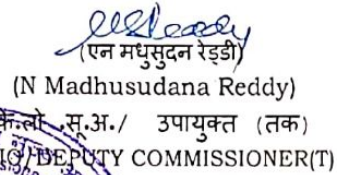 (एन मधुसुदन रेड्डी)
(N Madhusudana Reddy)
के.लो .सू.अ./ उपायुक्त (तक)
DEPUTY COMMISSIONER(T)